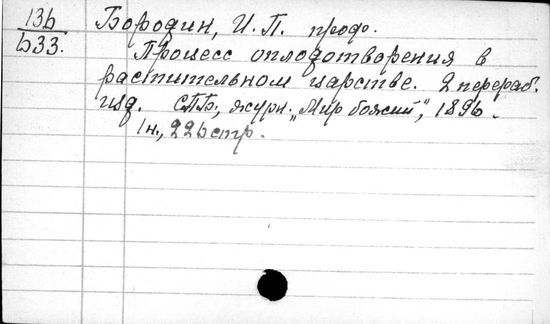 13б Бородин, И. П. проф.
Б33. Процесс оплодотворения в
растительном царстве. 2 перераб.
изд. СПБ, журн. „Мир божий", 1896.
1 н., 226 стр.